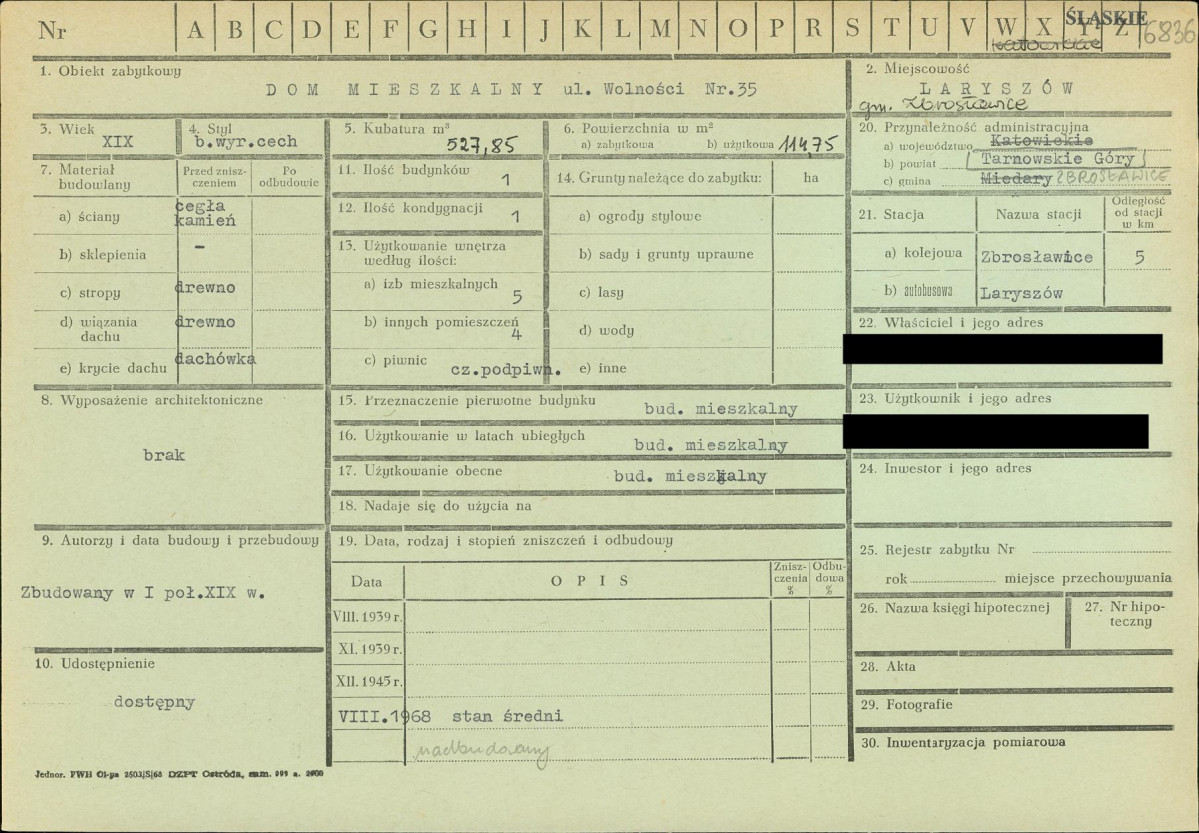 Nr A B C D E F G H I J K L M N O P R S T U V W X Y Z
ŚLĄSKIE
6836
Katowickie
1. Obiekt zabytkowy
DOM MIESZKALNY ul. Wolności Nr.35
2. Miejscowość
LARYSZÓW
gm. Zbrosławice
3. Wiek
XIX
4. Styl
b.wyr.cech
5. Kubatura m³
527,85
6. Powierzchnia w m²
a) zabytkowa b) użytkowa 114,75
20. Przynależność administracyjna
a) województwo Katowickie
b) powiat Tarnowskie Góry
c) gmina Miedary ZBROSŁAWICE
7. Materiał budowlany
Przed zniszczeniem
Po odbudowie
a) ściany cegła kamień
b) sklepienia –
c) stropy drewno
d) wiązania dachu drewno
e) krycie dachu dachówka
11. Ilość budynków 1
12. Ilość kondygnacji 1
13. Użytkowanie wnętrza według ilości:
a) izb mieszkalnych 5
b) innych pomieszczeń 4
c) piwnic cz.podpiwn.
14. Grunty należące do zabytku: ha
a) ogrody stylowe
b) sady i grunty uprawne
c) lasy
d) wody
e) inne
21. Stacja Nazwa stacji Odległość od stacji w km
a) kolejowa Zbrosławice 5
b) autobusowa Laryszów
22. Właściciel i jego adres
23. Użytkownik i jego adres
24. Inwestor i jego adres
8. Wyposażenie architektoniczne
brak
15. Przeznaczenie pierwotne budynku bud. mieszkalny
16. Użytkowanie w latach ubiegłych bud. mieszkalny
17. Użytkowanie obecne bud. mieszkalny
18. Nadaje się do użycia na
9. Autorzy i data budowy i przebudowy
Zbudowany w I poł.XIX w.
19. Data, rodzaj i stopień zniszczeń i odbudowy
Data OPIS Zniszczenia % Odbudowa %
VIII. 1939 r.
XI. 1939 r.
XII. 1945 r.
VIII.1968 stan średni
nadbudowany
10. Udostępnienie
dostępny
25. Rejestr zabytku Nr
rok miejsce przechowywania
26. Nazwa księgi hipotecznej
27. Nr hipoteczny
28. Akta
29. Fotografie
30. Inwentaryzacja pomiarowa
Jednor. PWH Ol-pa 2503/S/68 DZPT Ostróda, zam. 999 a. 2000